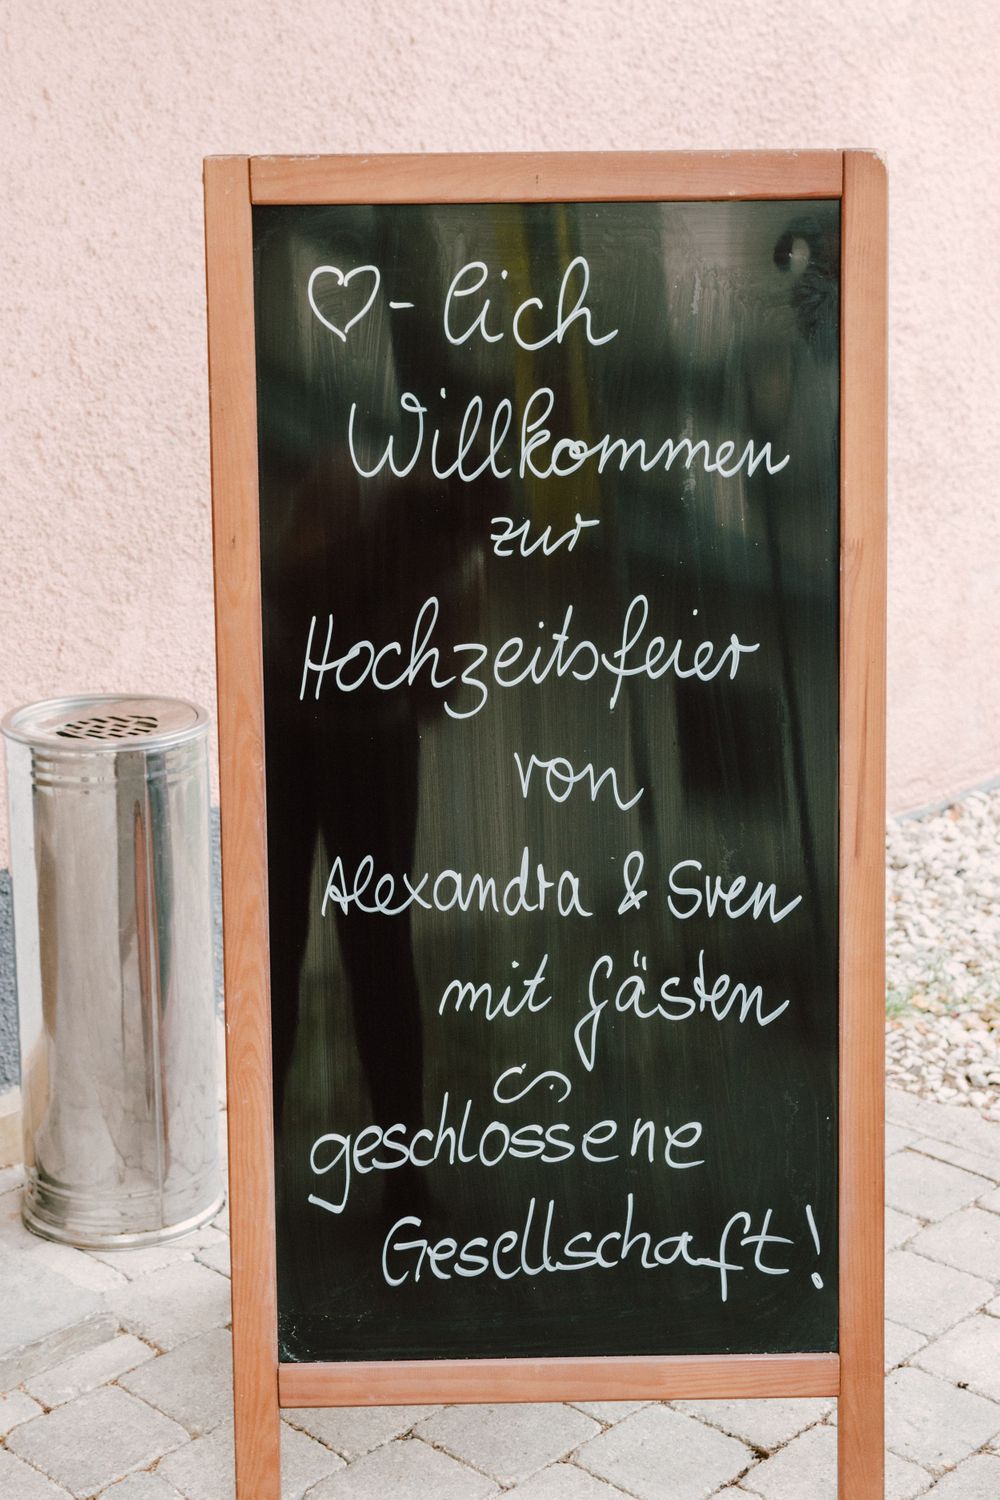 ♡-lich
Willkommen
zur
Hochzeitsfeier
von
Alexandra & Sven
mit Gästen
geschlossene
Gesellschaft!